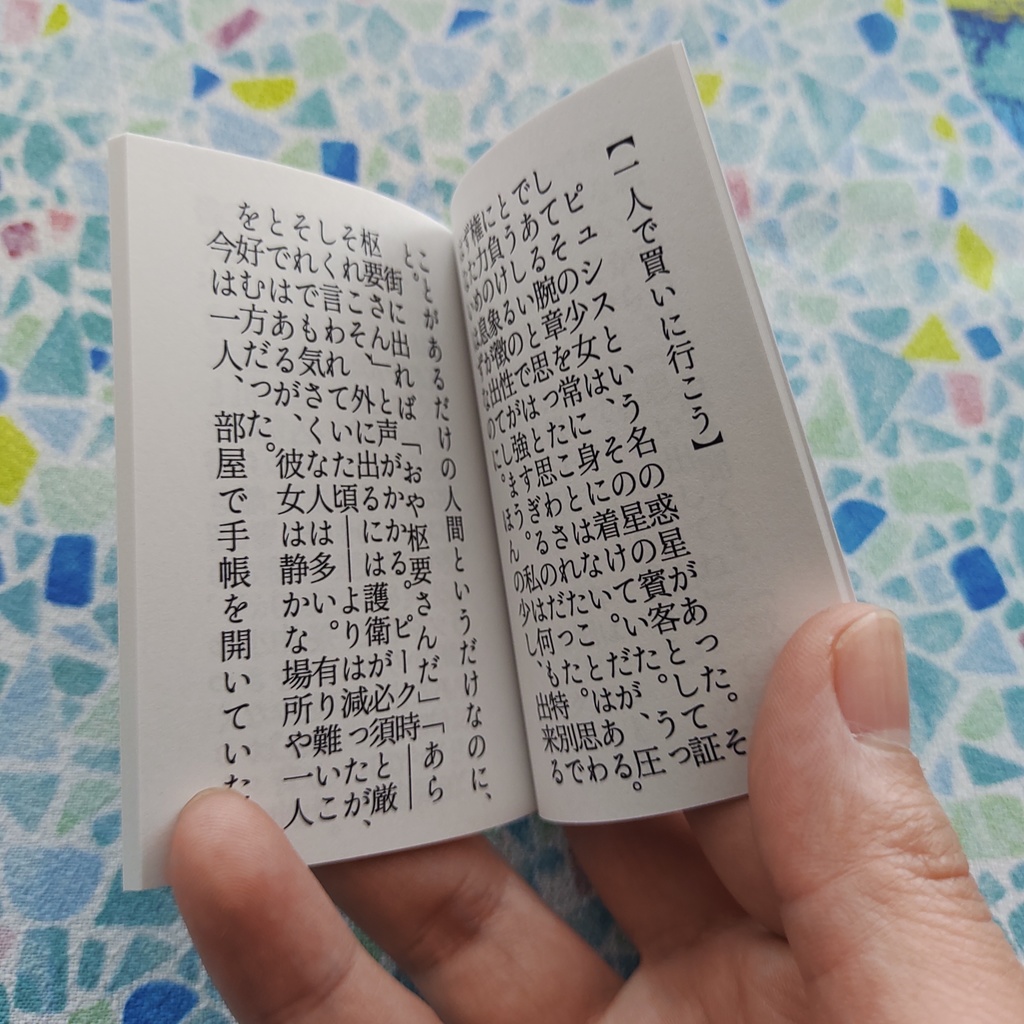 【一人で買いに行こう】
ピュシスという名の惑星があった。そ
してその少女は、その星の賓客として証
である腕章を常に身に着けていた。うっ
とうしいと思ったことはない。だが、圧
に負けるのではと思わされたことはある。
権力の象徴性が強すぎるのだった。思わ
ずため息が出てしまう。私は何も特別で
ないはずなのに。ほんの少し、出来る
ことがあるだけの人間というだけなのに、
と。
街に出れば「おや枢要さんだ」「あら
枢要さん」と声がかかる。ピーク時――
それこそ、外に出るには護衛が必須と厳
しく言われていた頃――よりは減ったが、
それでも気さくな人は多い。有り難いこ
とではあるが、彼女は静かな場所や一人
を好む方だった。
今は一人、部屋で手帳を開いていた